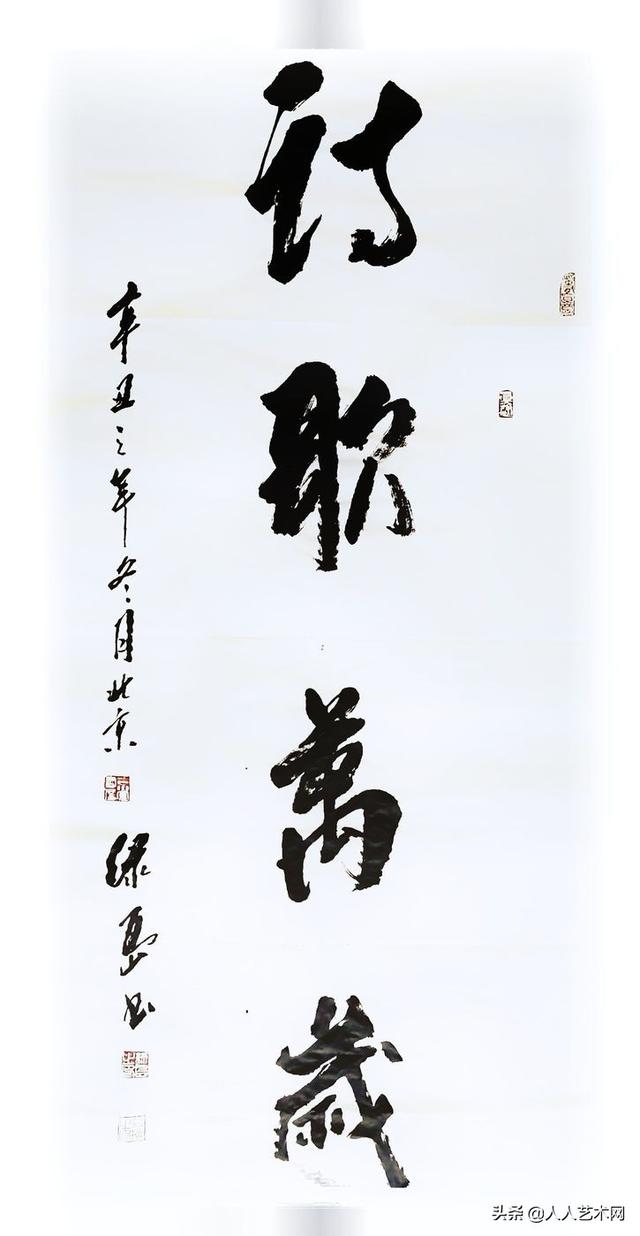 诗歌萬歲
辛丑之年冬月北京
绿岛书
头条 @人人艺术网